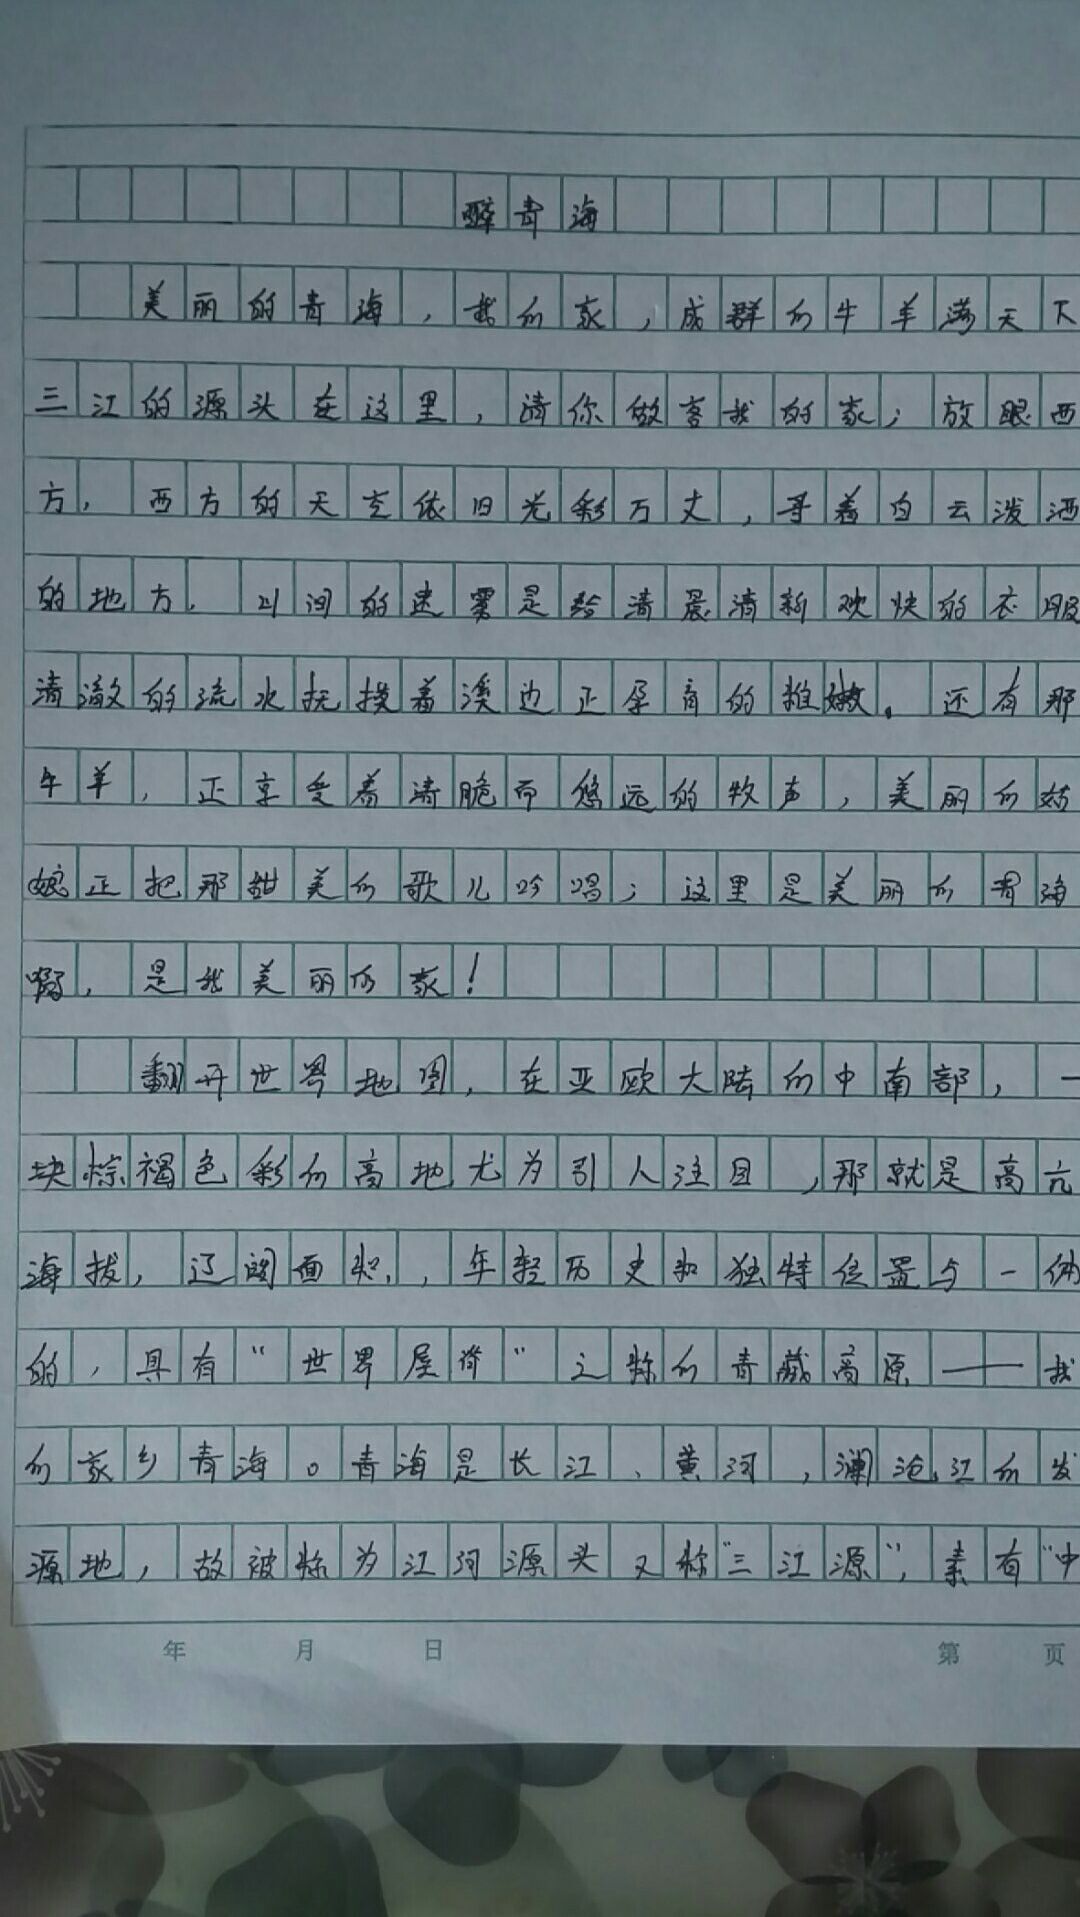 醉青海
美丽的青海，我的家，成群的牛羊满天下
三江的源头在这里，请你做客我的家；放眼西
方，西方的天空依旧光彩万丈，寻着白云泼洒
的地方，山间的迷雾是给清晨清新欢快的衣服
清澈的流水抚摸着溪边正孕育的稚嫩。还有那
牛羊，正享受着清脆而悠远的牧声，美丽的姑
娘正把那甜美的歌儿吟唱；这里是美丽的青海
啊，是我美丽的家！
翻开世界地图，在亚欧大陆的中南部，一
块棕褐色彩的高地尤为引人注目，那就是高亢
海拔，辽阔面积，年轻历史和独特位置与一体
的，具有“世界屋脊”之称的青藏高原——我
的家乡青海。青海是长江、黄河，澜沧江的发
源地，故被称为江河源头又称“三江源”，素有“中
年 月 日 第 页